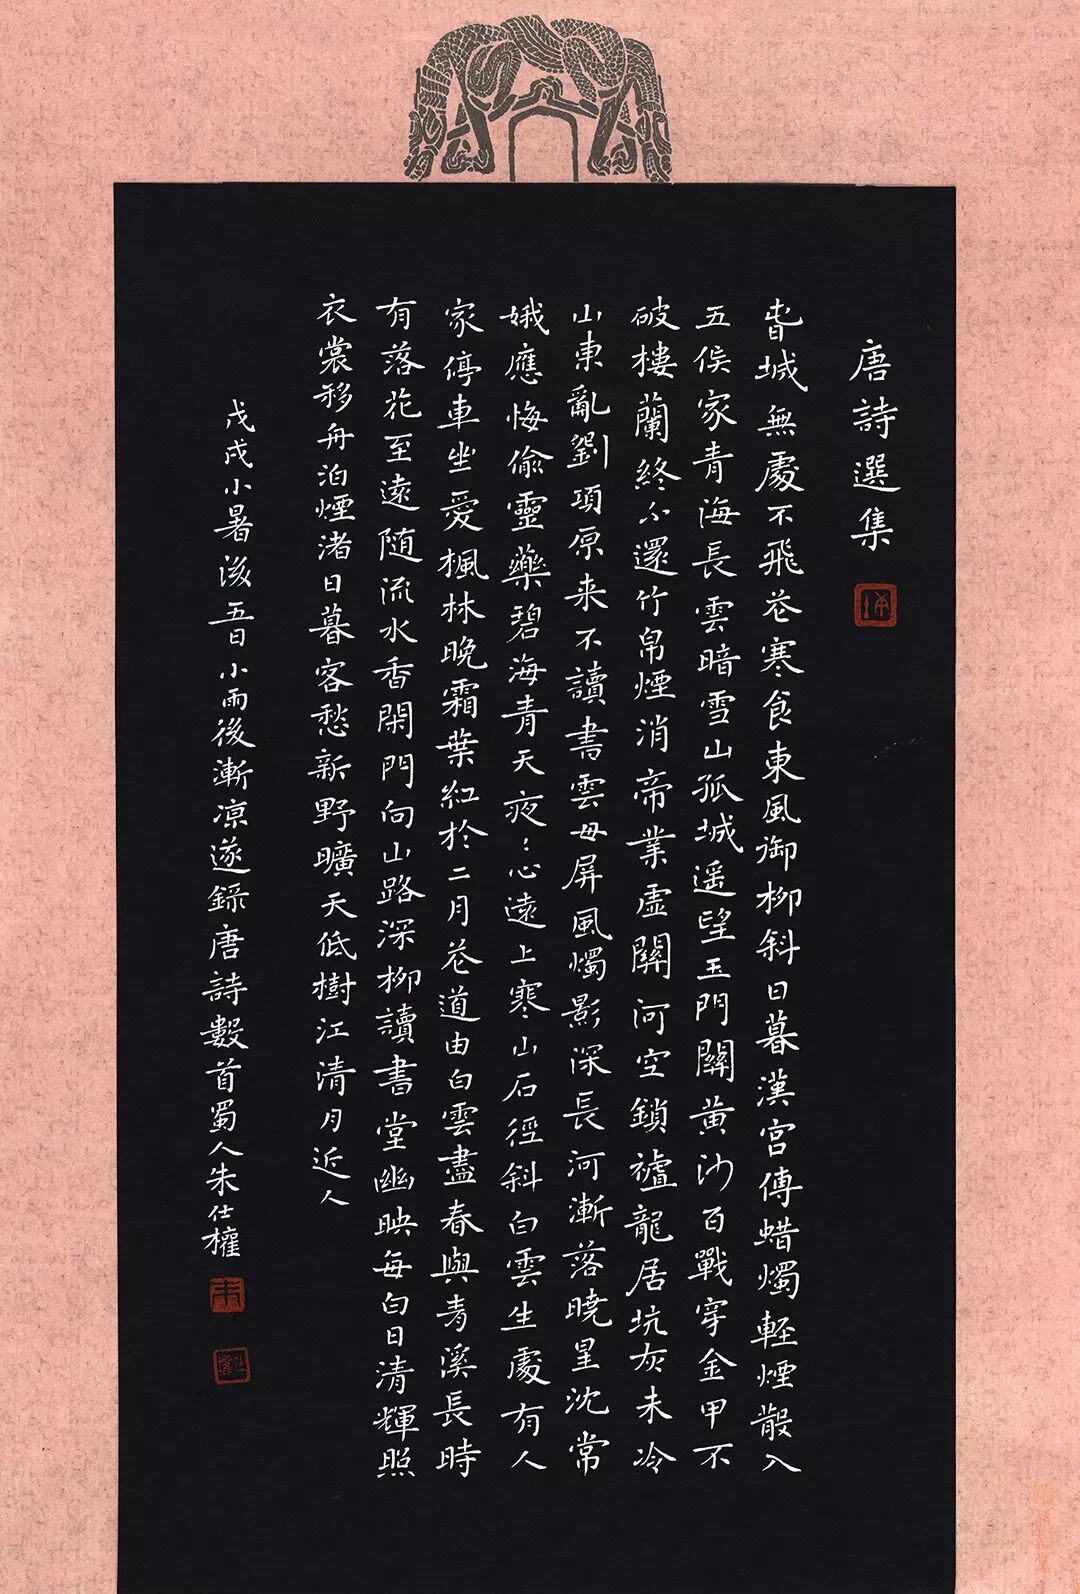 唐詩選集
春城無處不飛花寒食東風御柳斜日暮漢宮傳蜡燭輕煙散入
五侯家青海長雲暗雪山孤城遥望玉門關黃沙百戰穿金甲不
破樓蘭終不還竹帛煙消帝業虛關河空鎖祖龍居坑灰未冷
山東亂劉項原来不讀書雲母屏風燭影深長河漸落曉星沈常
娥應悔偷靈藥碧海青天夜〻心遠上寒山石徑斜白雲生處有人
家停車坐愛楓林晚霜葉紅於二月花道由白雲盡春與青溪長時
有落花至遠随流水香閑門向山路深柳讀書堂幽映每白日清輝照
衣裳移舟泊煙渚日暮客愁新野曠天低樹江清月近人
戊戌小暑後五日小雨後漸凉遂錄唐詩數首蜀人朱仕權